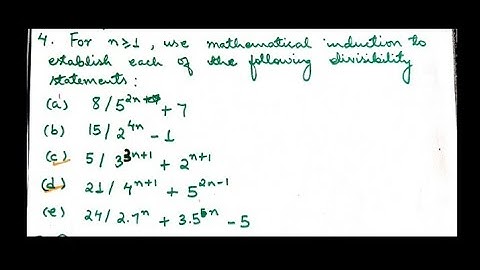 4. For n≥1, use mathematical induction to
establish each of the following divisibility
statements:
(a) 8/5^{2n} + 7
(b) 15/2^{4n} - 1
(c) 5/3^{3n+1} + 2^{n+1}
(d) 21/4^{n+1} + 5^{2n-1}
(e) 24/2.7^n + 3.5^{n} - 5